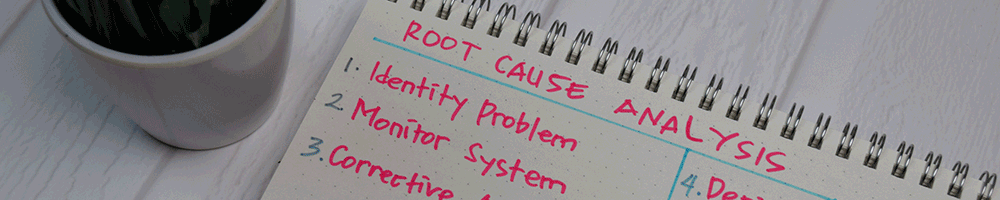 ROOT CAUSE ANALYSIS
1. Identity Problem
2. Monitor System
3. Corrective
4.